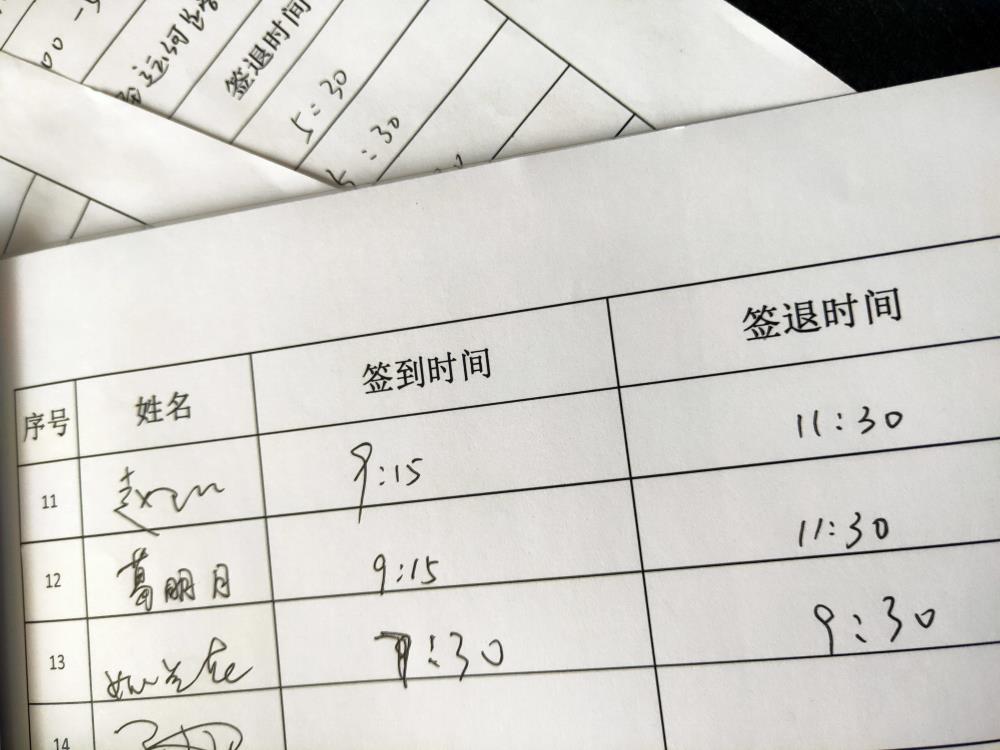 00
签退时间
5:30
5:30
序号 姓名 签到时间 签退时间
11 9:15 11:30
12 葛明月 9:15 11:30
13 :30 9:30
14